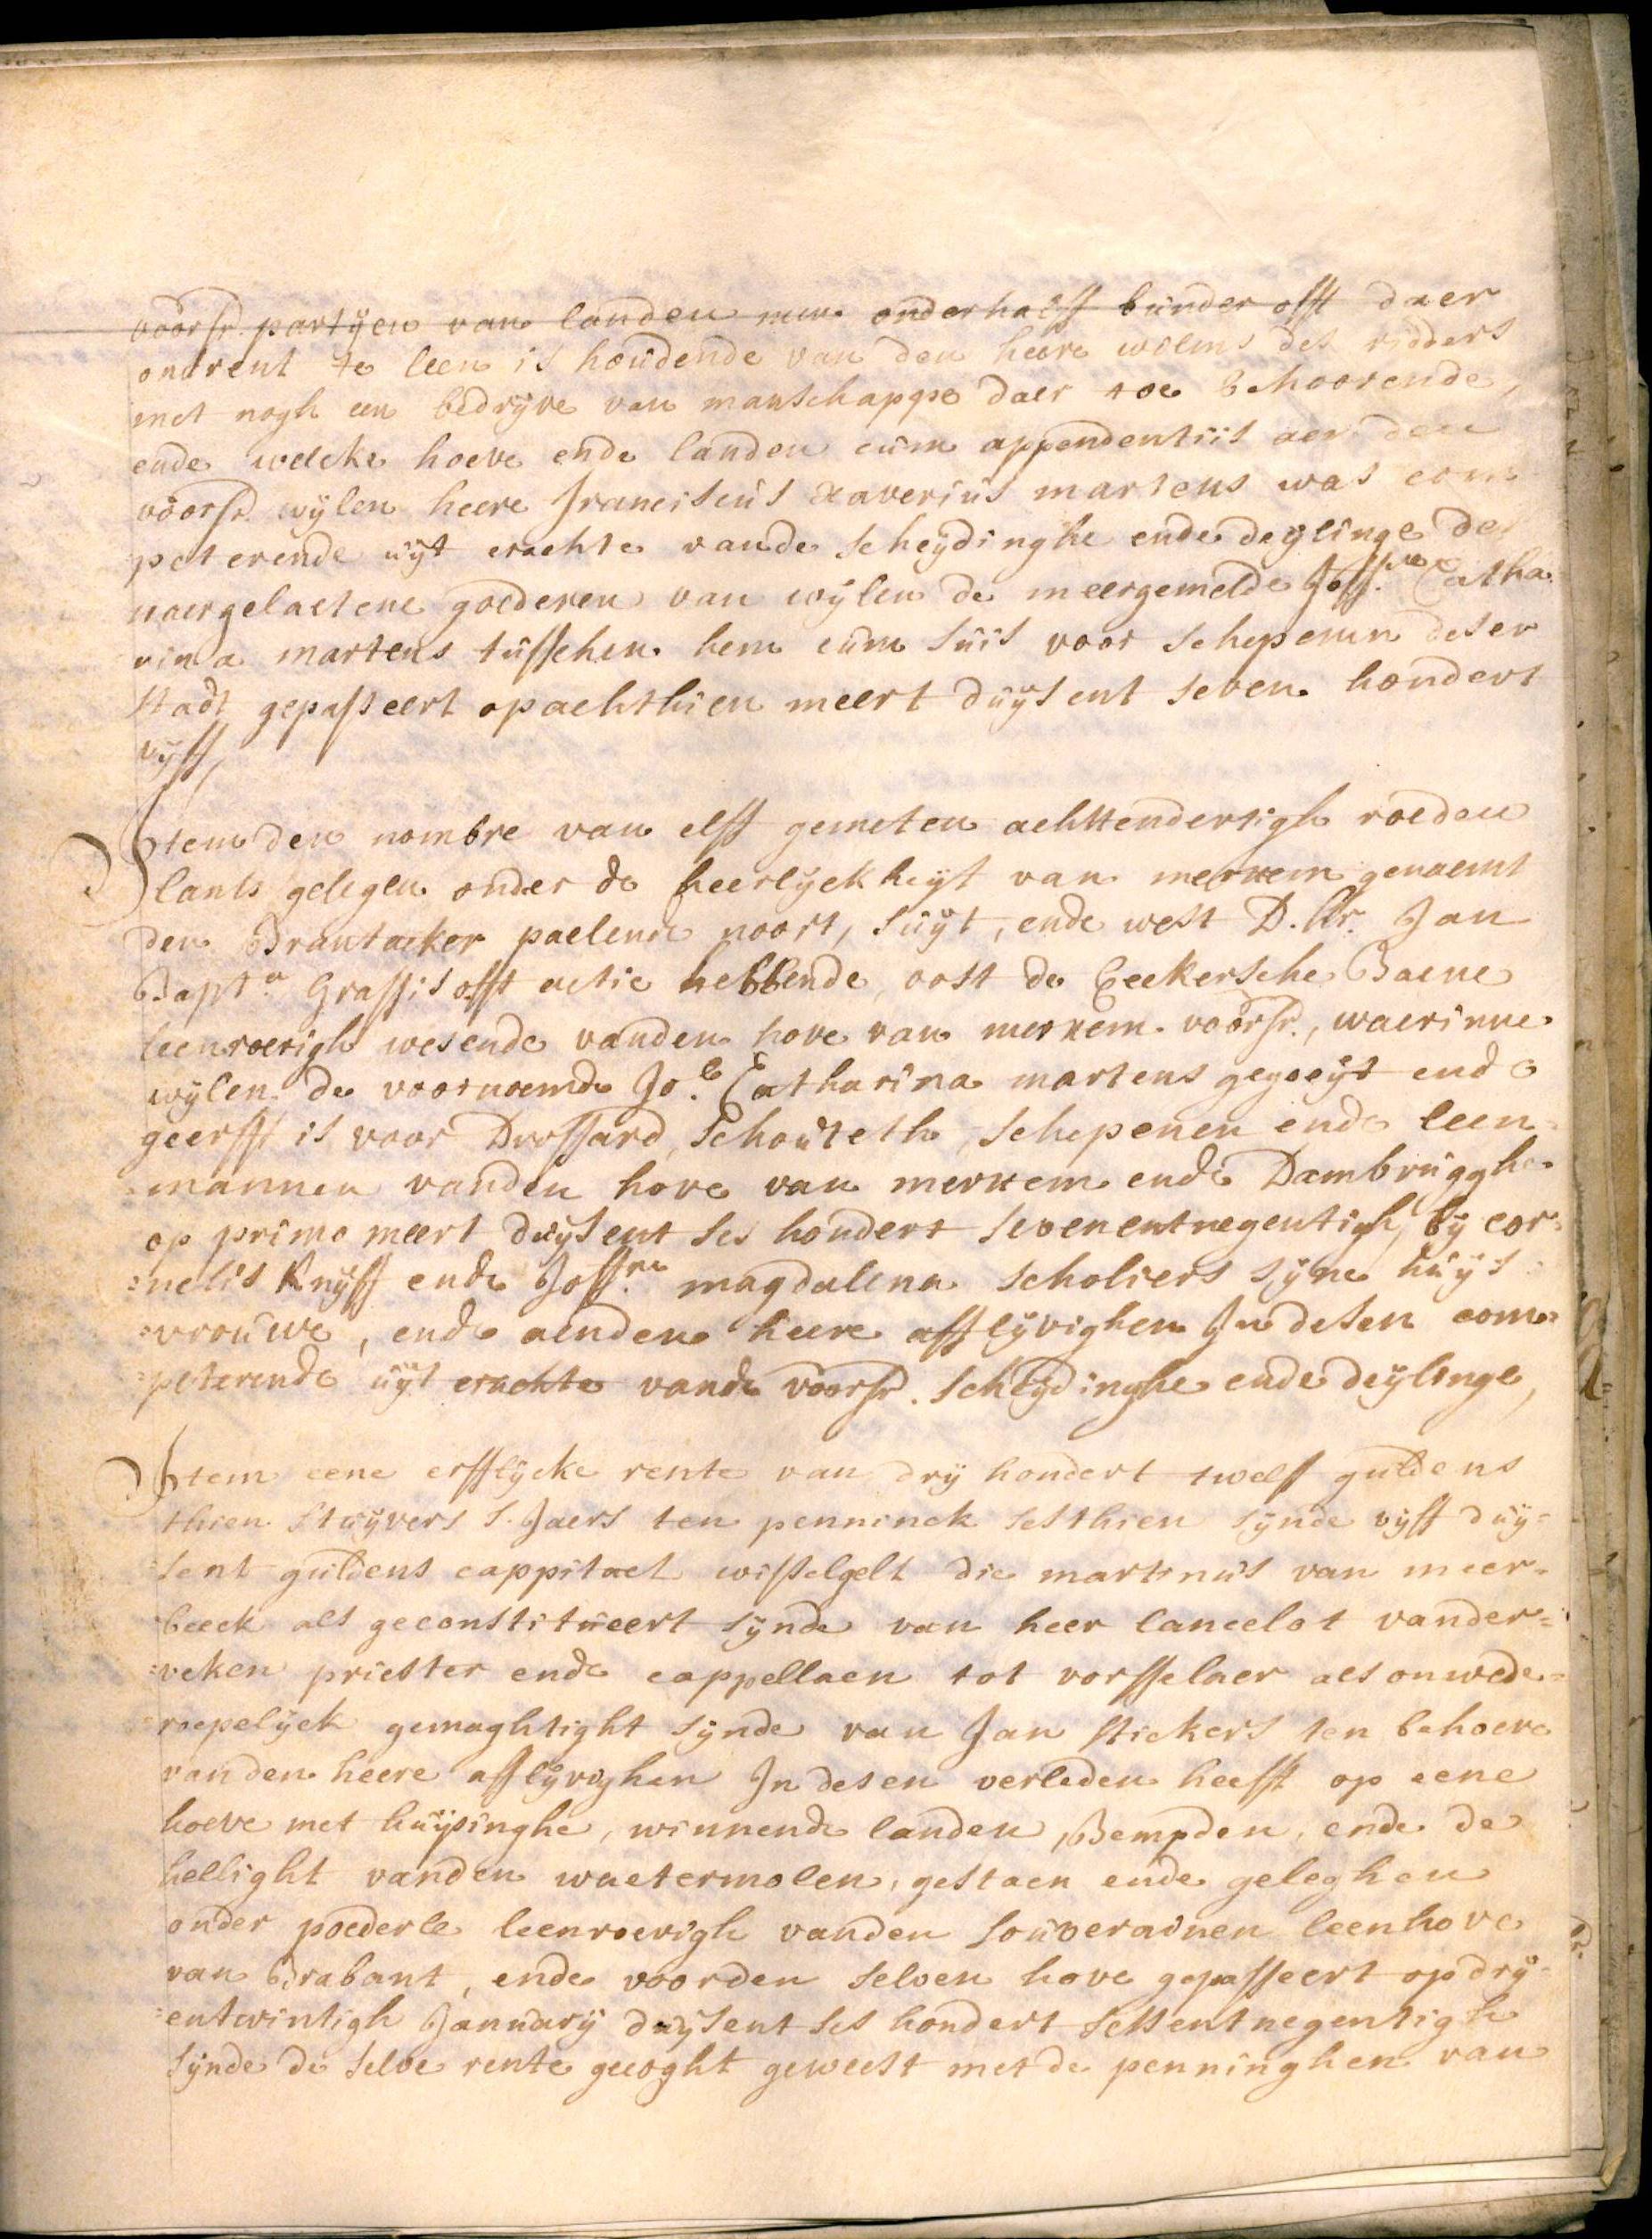 voorsr. partijen van landen een onderhalff bunder offt daer
ontrent te leen is houdende van den heere wilms des ridders
met nogh een bedryve van manschappe daer toe behoorende,
ende welcke hoeve ende landen cum appendentiis aen den
voorsr. wylen heere franciscus xaverius martens was com
peterende uyt crachte vande scheydinghe ende deylinge der
naergelaetene goederen van wylen de meergemelde Joff.we Catha
rina martens tusschen hem cum suis voor schepenen deser
stadt gepasseert op achthien meert duysent seven hondert
vyff,
Item den nombre van elff gemeten achtendertigh roeden
lants gelegen onder de heerlyckheyt van merxem genaemt
den Brantacker paelende noort, suyt, ende west D. Hr. Jan
Bapt.a Grassis offt actie hebbende, oost de Eeckersche Baene
leenroerigh wesende vanden hove van merxem voorsr., waerinne
wylen de voornoemde Jo.e Catharina martens gegoeyt ende
geerfft is voor Drossard, schouteth, schepenen ende leen=
=mannen vanden hove van merxem ende Dambrugghe
op primo meert duysent ses hondert sevenentnegentigh, by cor=
=nelis Knyff ende Joff.we magdalena scholiers syne huys=
=vrouwe, ende aenden heere afflyvighen In desen com=
=peterende uyt crachte vande voorsr. scheydinghe ende deylinge,
Item eene erfflycke rente van dry hondert twelf guldens
thien stuyvers s. Jaers ten penninck sesthien synde vyff duy=
=sent guldens cappitael wisselgelt die martinus van meer=
=beeck als geconstitueert synde van heer lancelot vander=
=veken priester ende cappellaen tot vorsselaer als onwede=
=roepelyck gemaghtight synde van Jan stickers ten behoeve
vanden heere afflyvighen In desen verleden heefft op eene
hoeve met huysinghe, winnende landen, Bempden, ende de
hellight vanden waetermolen, gestaen ende geleghen
onder poederle leenroerigh vanden souverainen leenhove
van Brabant, ende voorden selven hove gepasseert op dry=
=entwintigh January duysent ses hondert sessentnegentigh
synde de selve rente gecoght geweest met de penninghen van